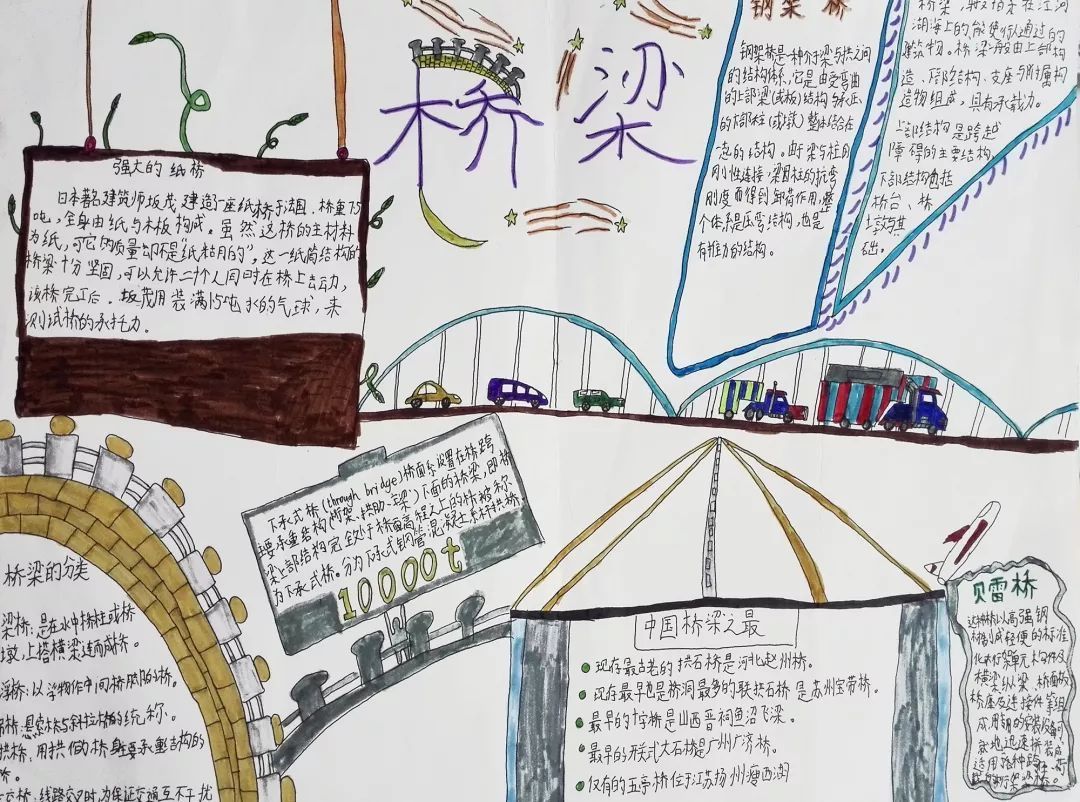 桥梁
强大的纸桥
日本著名建筑师坂茂,建造了一座纸桥于法国.桥重7.5
吨,全身由纸与木板构成。虽然这桥的主材料
为纸,可它的质量却不是“纸糊的”,这一纸筒结构的
桥梁十分坚固,可以允许二十个人同时在桥上走动,
该桥完工后.坂茂用装满1.5吨水的气球,来
测试桥的承托力.
钢架桥
钢架桥是一种介于梁与拱之间
的结构体系,它是由受弯曲
的上部梁(或板)结构与承压
的下部柱(或墩)整体结合在
一起的结构。由于梁与柱的
刚性连接,梁因柱的抗弯
刚度而得到卸荷作用,整
个体系是压弯结构,也是
有推力的结构。
桥梁,一般指架在江河
湖海上的,能使行人通过的
建筑物。桥梁一般由上部构
造、下部结构、支座与附属构
造物组成,具有承载力。
上部结构是跨越
障碍的主要结构,
下部结构包括
桥台、桥
墩与基
础。
下承式桥(through bridge)桥面系设置在桥跨
主要承重结构(桁架、拱肋、主梁)下面的桥梁,即桥
梁上部结构完全处于桥面高程之上的桥被称
为下承式桥。分为下承式钢管混凝土系杆拱桥、
10000t
桥梁的分类
梁桥:是在水中桥柱或桥
墩,上搭横梁连而成桥。
浮桥:以浮物作中间桥脚的小桥。
吊桥:悬索桥与斜拉桥的统称。
拱桥:用拱做桥身主要承重结构的
桥。
立交桥:线路交叉时,为保证交通互不干扰
中国桥梁之最
现存最古老的拱石桥是河北赵州桥。
现存最早也是桥洞最多的联拱石桥是苏州宝带桥。
最早的十字桥是山西晋祠鱼沼飞梁。
最早的开式大石桥是广州广济桥。
仅有的五亭桥位于江苏扬州瘦西湖
贝雷桥
这种桥以高强钢
材制成轻便的标准
化桁架单元构件及
横梁、纵梁、桥面板
桥座及连接件等组
成,用
就地迅速拼装成
适用于各种跨